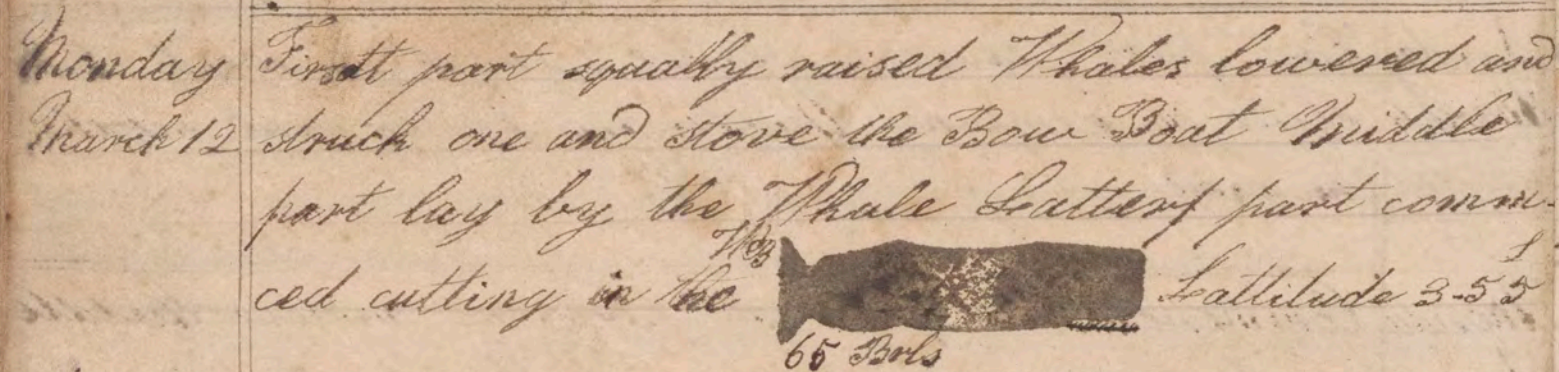 Monday First part squally raised Whales lowered and
March 12 struck one and stove the Bow Boat Middle
part lay by the Whale Latter part comm-
ced cutting in the WB Lattitude 3-55 S
65 Brls